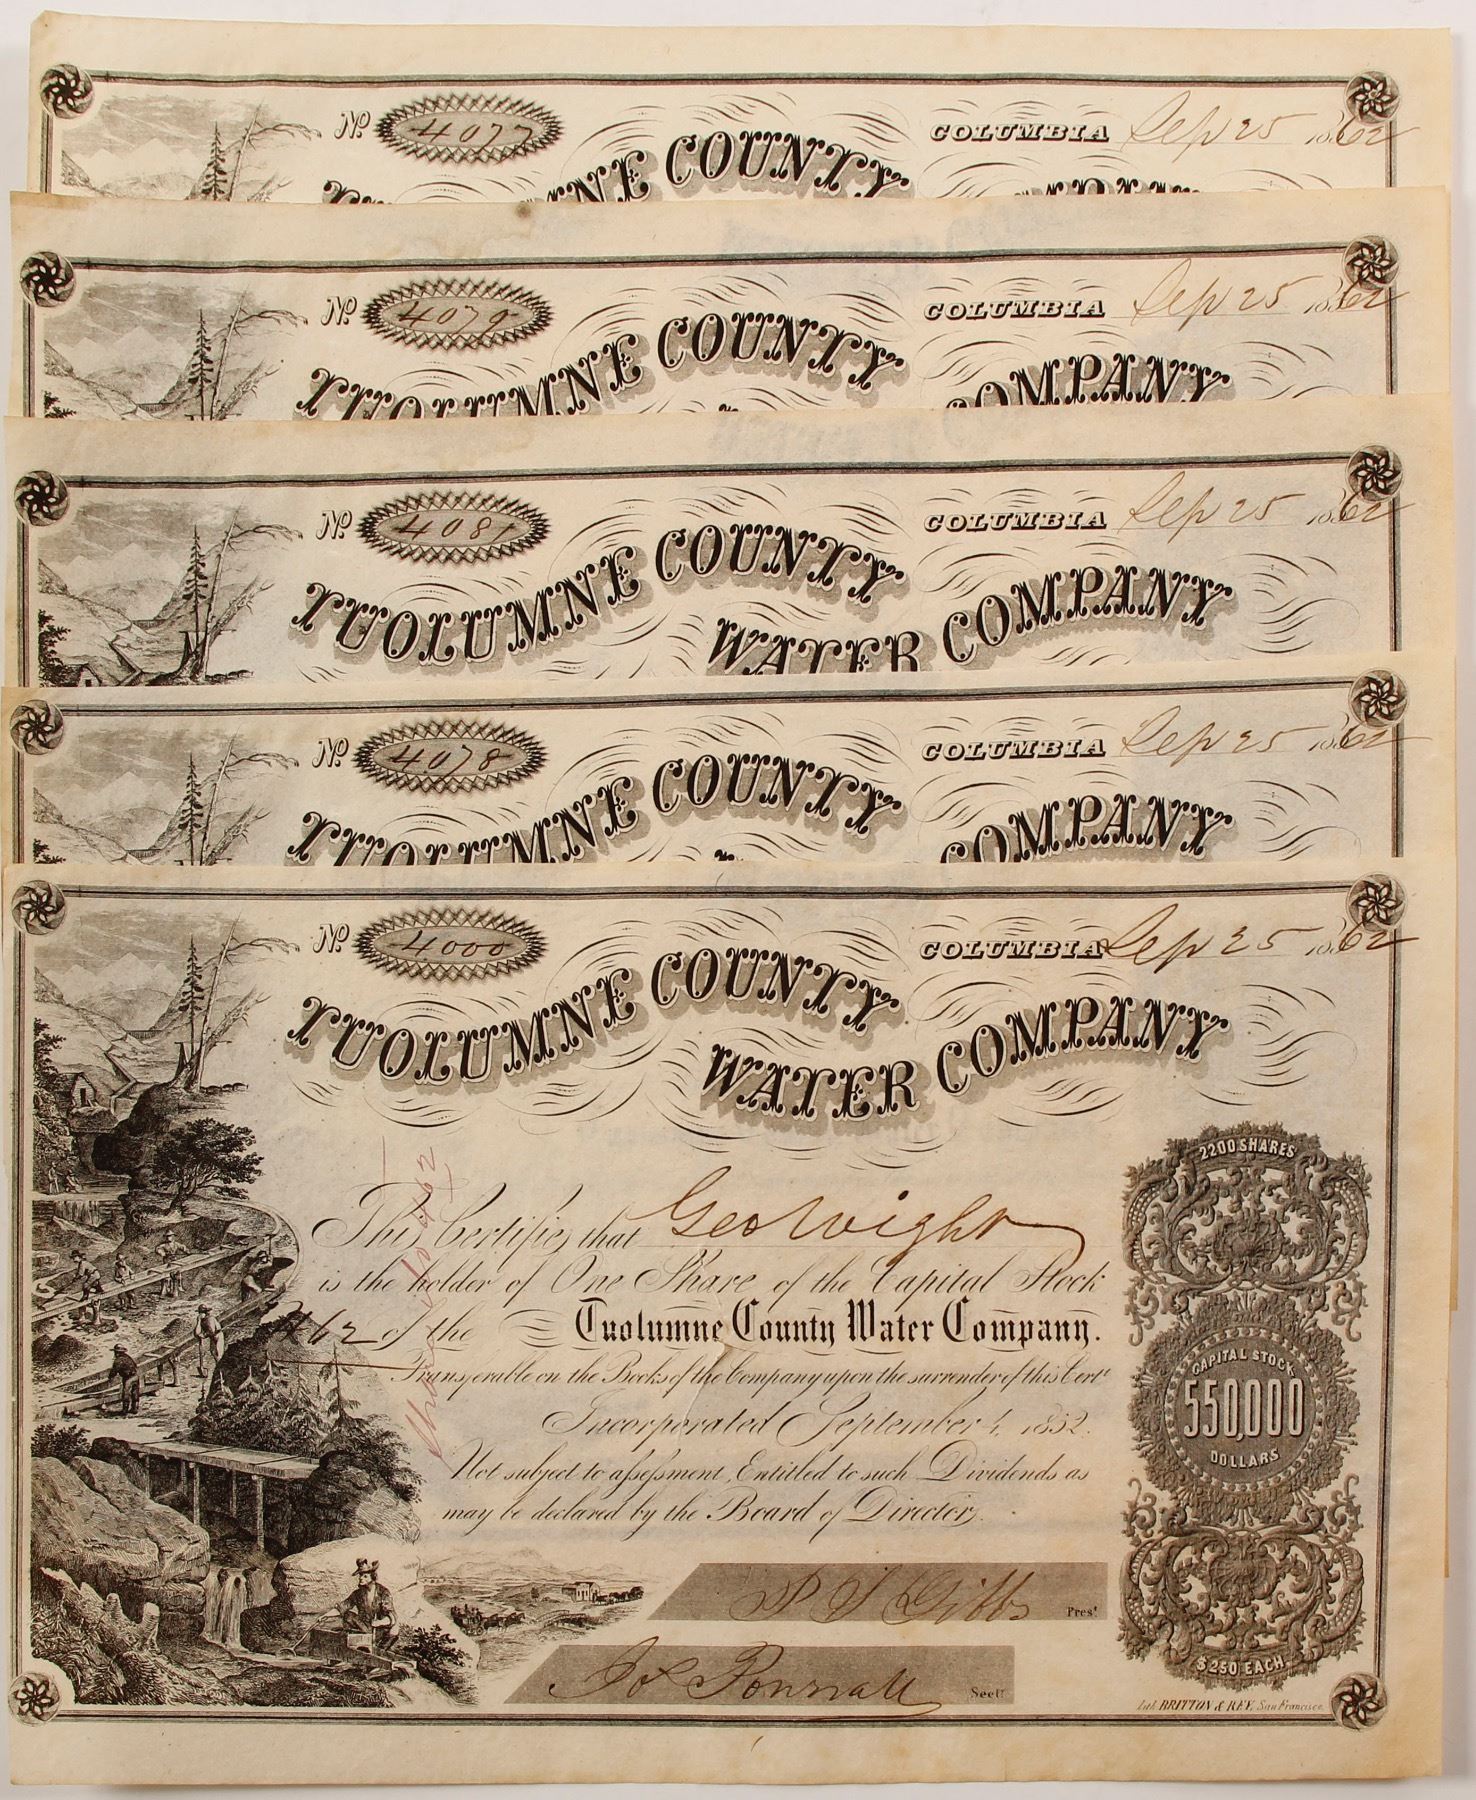 No 4077 COLUMBIA Sep 25 1862
COUNTY
No 4079 COLUMBIA Sep 25 1862
TUOLUMNE COUNTY COMPANY
No 4081 COLUMBIA Sep 25 1862
TUOLUMNE COUNTY
WATER COMPANY
No 4078 COLUMBIA Sep 25 1862
TUOLUMNE COUNTY COMPANY
No 4000 COLUMBIA Sep 25 1862
TUOLUMNE COUNTY
WATER COMPANY
2200 SHARES
This Certifies that Geo Wight
is the holder of One Share of the Capital Stock
of the Tuolumne County Water Company.
Transferable on the Books of the Company upon the surrender of this Certe
Incorporated September 4, 1852.
Not subject to assessment, Entitled to such Dividends as
may be declared by the Board of Directors.
CAPITAL STOCK
550,000
DOLLARS
P S Gibbs Prest
Jos Pownall Secty
$250 EACH
Lith. BRITTON & REY, San Francisco